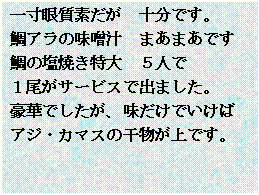 一寸眼質素だが　十分です。
鯛アラの味噌汁　まあまあです
鯛の塩焼き特大　５人で
１尾がサービスで出ました。
豪華でしたが、味だけでいけば
アジ・カマスの干物が上です。